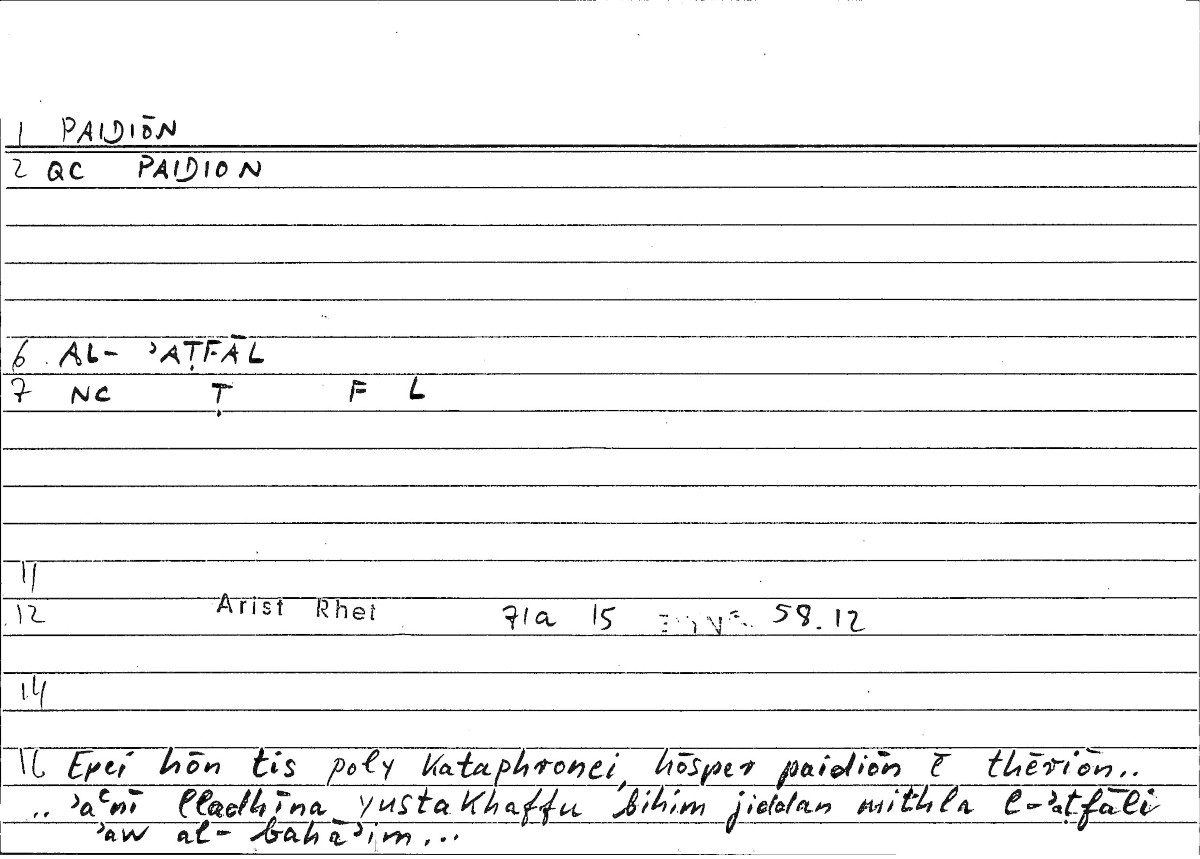 1 PAIDIŌN
2 QC PAIDION
6 AL- ʾAṬFĀL
7 NC Ṭ F L
11
12 Arist Rhet 71a 15 58.12
14
16 Epei hōn tis poly kataphronei, hōsper paidiōn ē thēriōn..
.. ʾaʿnī lladhīna yustakhaffu bihim jiddan mithla l-ʾaṭfāli
ʾaw al-bahāʾim...